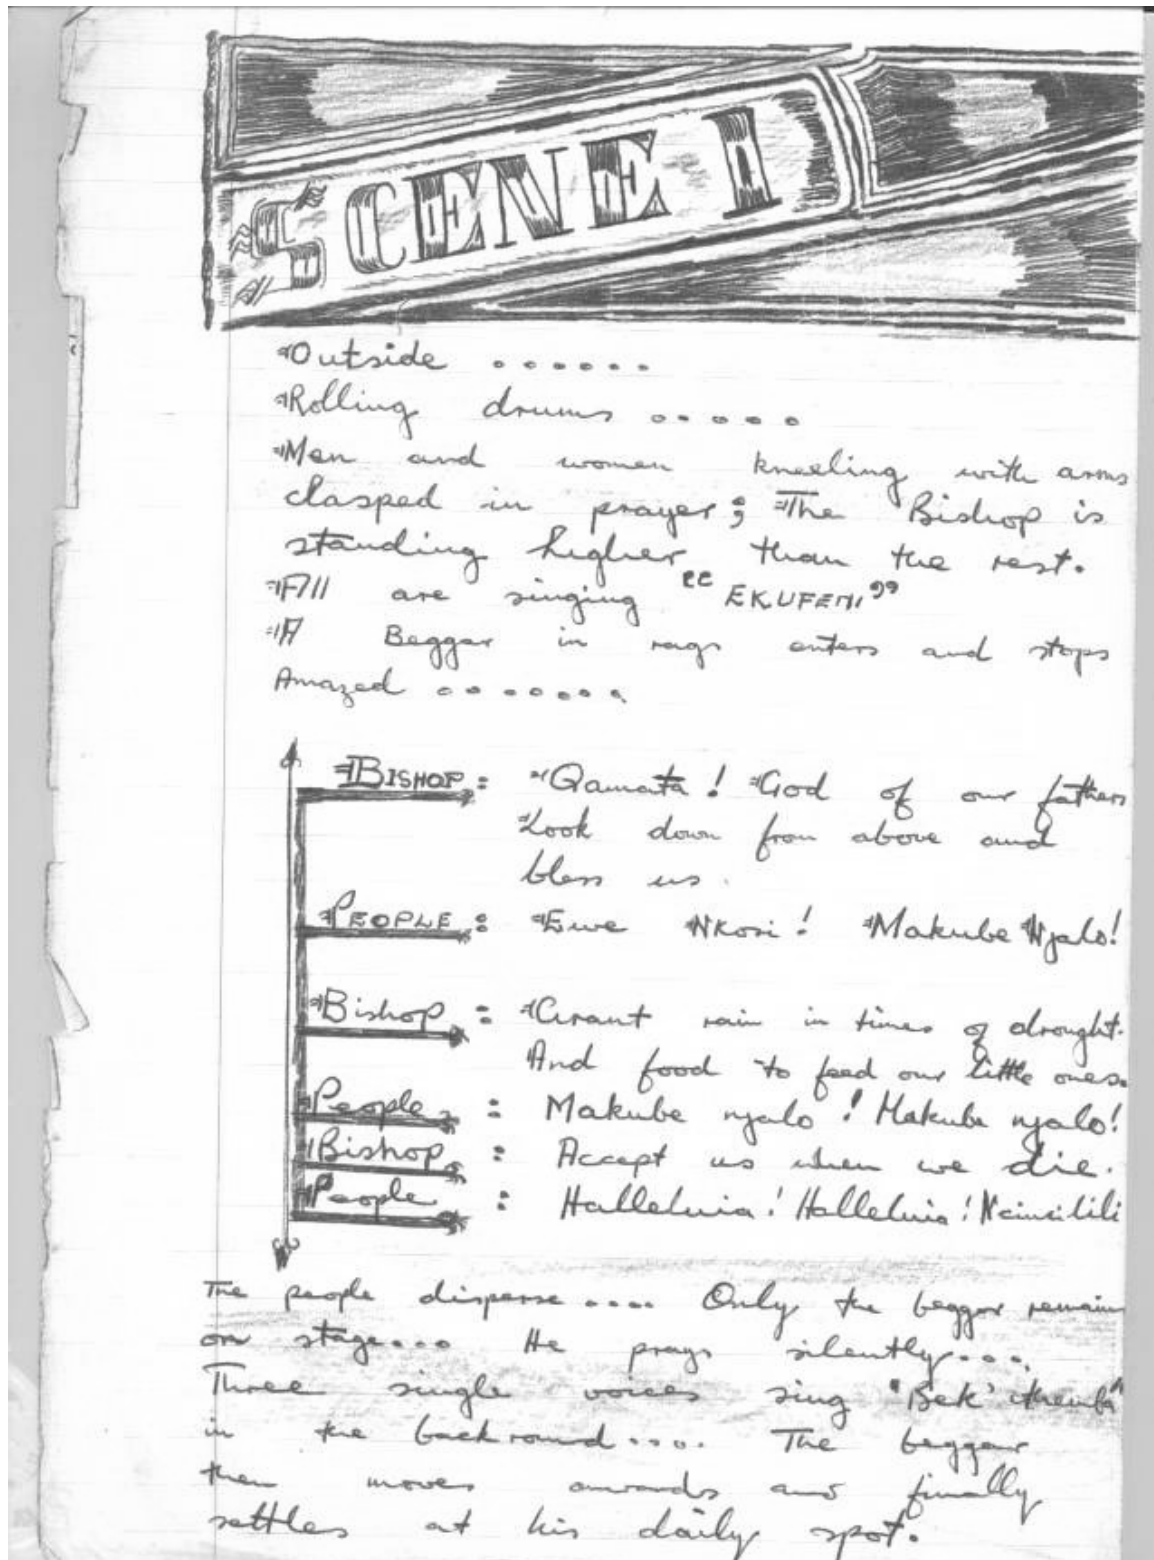 SCENE I
Outside ......
Rolling drums .....
Men and women kneeling with arms
clasped in prayer; The Bishop is
standing higher than the rest.
All are singing "EKUFENI"
A Beggar in rags enters and stops
Amazed .......
BISHOP: Qamata! God of our fathers
Look down from above and
bless us.
PEOPLE: Ewe Nkosi! Makube Njalo!
Bishop: Grant rain in times of drought.
And food to feed our little ones.
People: Makube njalo! Makube njalo!
Bishop: Accept us when we die.
People: Halleluia! Halleluia!
The people disperse.... Only the beggar remains
on stage.... He prays silently....
Three single voices sing "Bek' ithemba"
in the backround.... The beggar
then moves onwards and finally
settles at his daily spot.